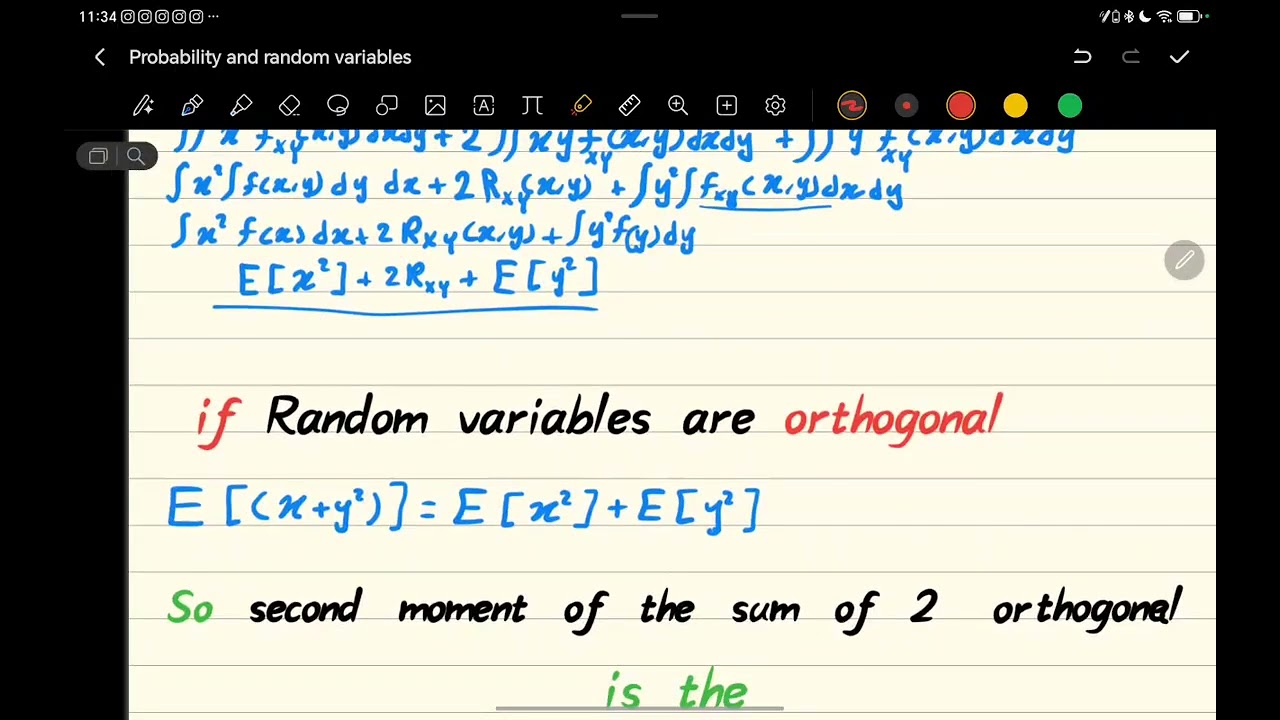 11:34
Probability and random variables
∫∫ x² f_XY(x,y)dxdy + 2∫∫ xy f_XY(x,y)dxdy + ∫∫ y² f_XY(x,y)dxdy
∫x²∫f(x,y)dy dx + 2R_XY(x,y) + ∫y²∫f_xy(x,y)dxdy
∫x² f(x)dx + 2R_XY(x,y) + ∫y²f(y)dy
E[x²] + 2R_xy + E[y²]
if Random variables are orthogonal
E[(x+y²)] = E[x²] + E[y²]
So second moment of the sum of 2 orthogonal
is the